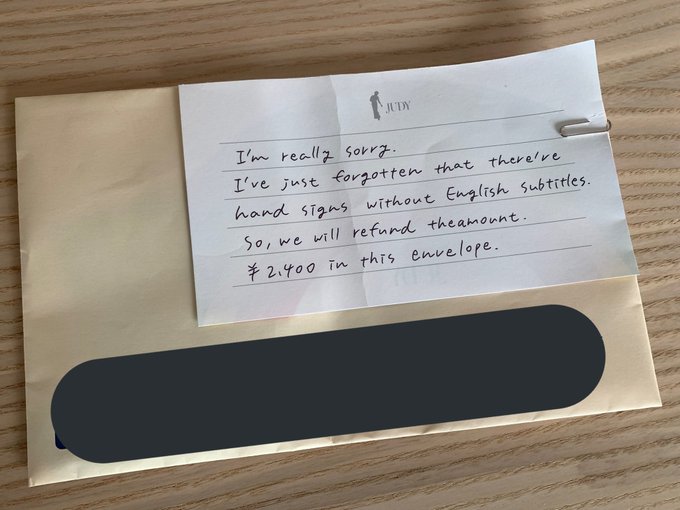 JUDY
I'm really sorry.
I've just forgotten that there're
hand signs without English subtitles.
So, we will refund theamount.
¥2,400 in this envelope.